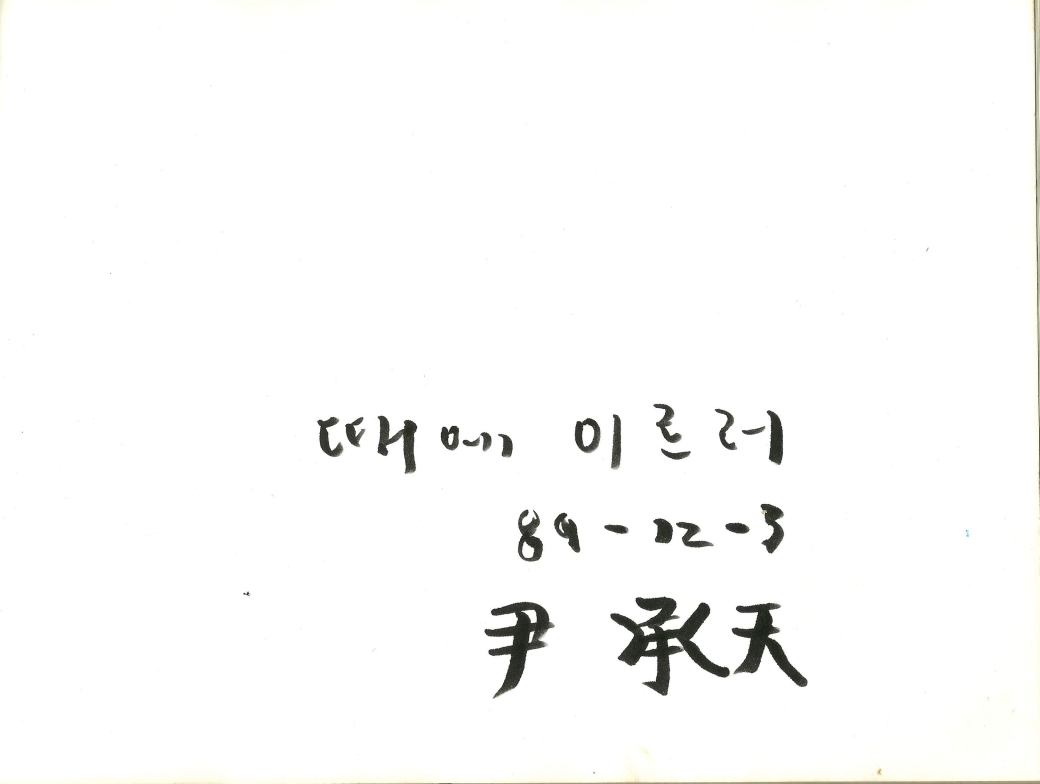 때에 이르러
89-12-3
尹 承天